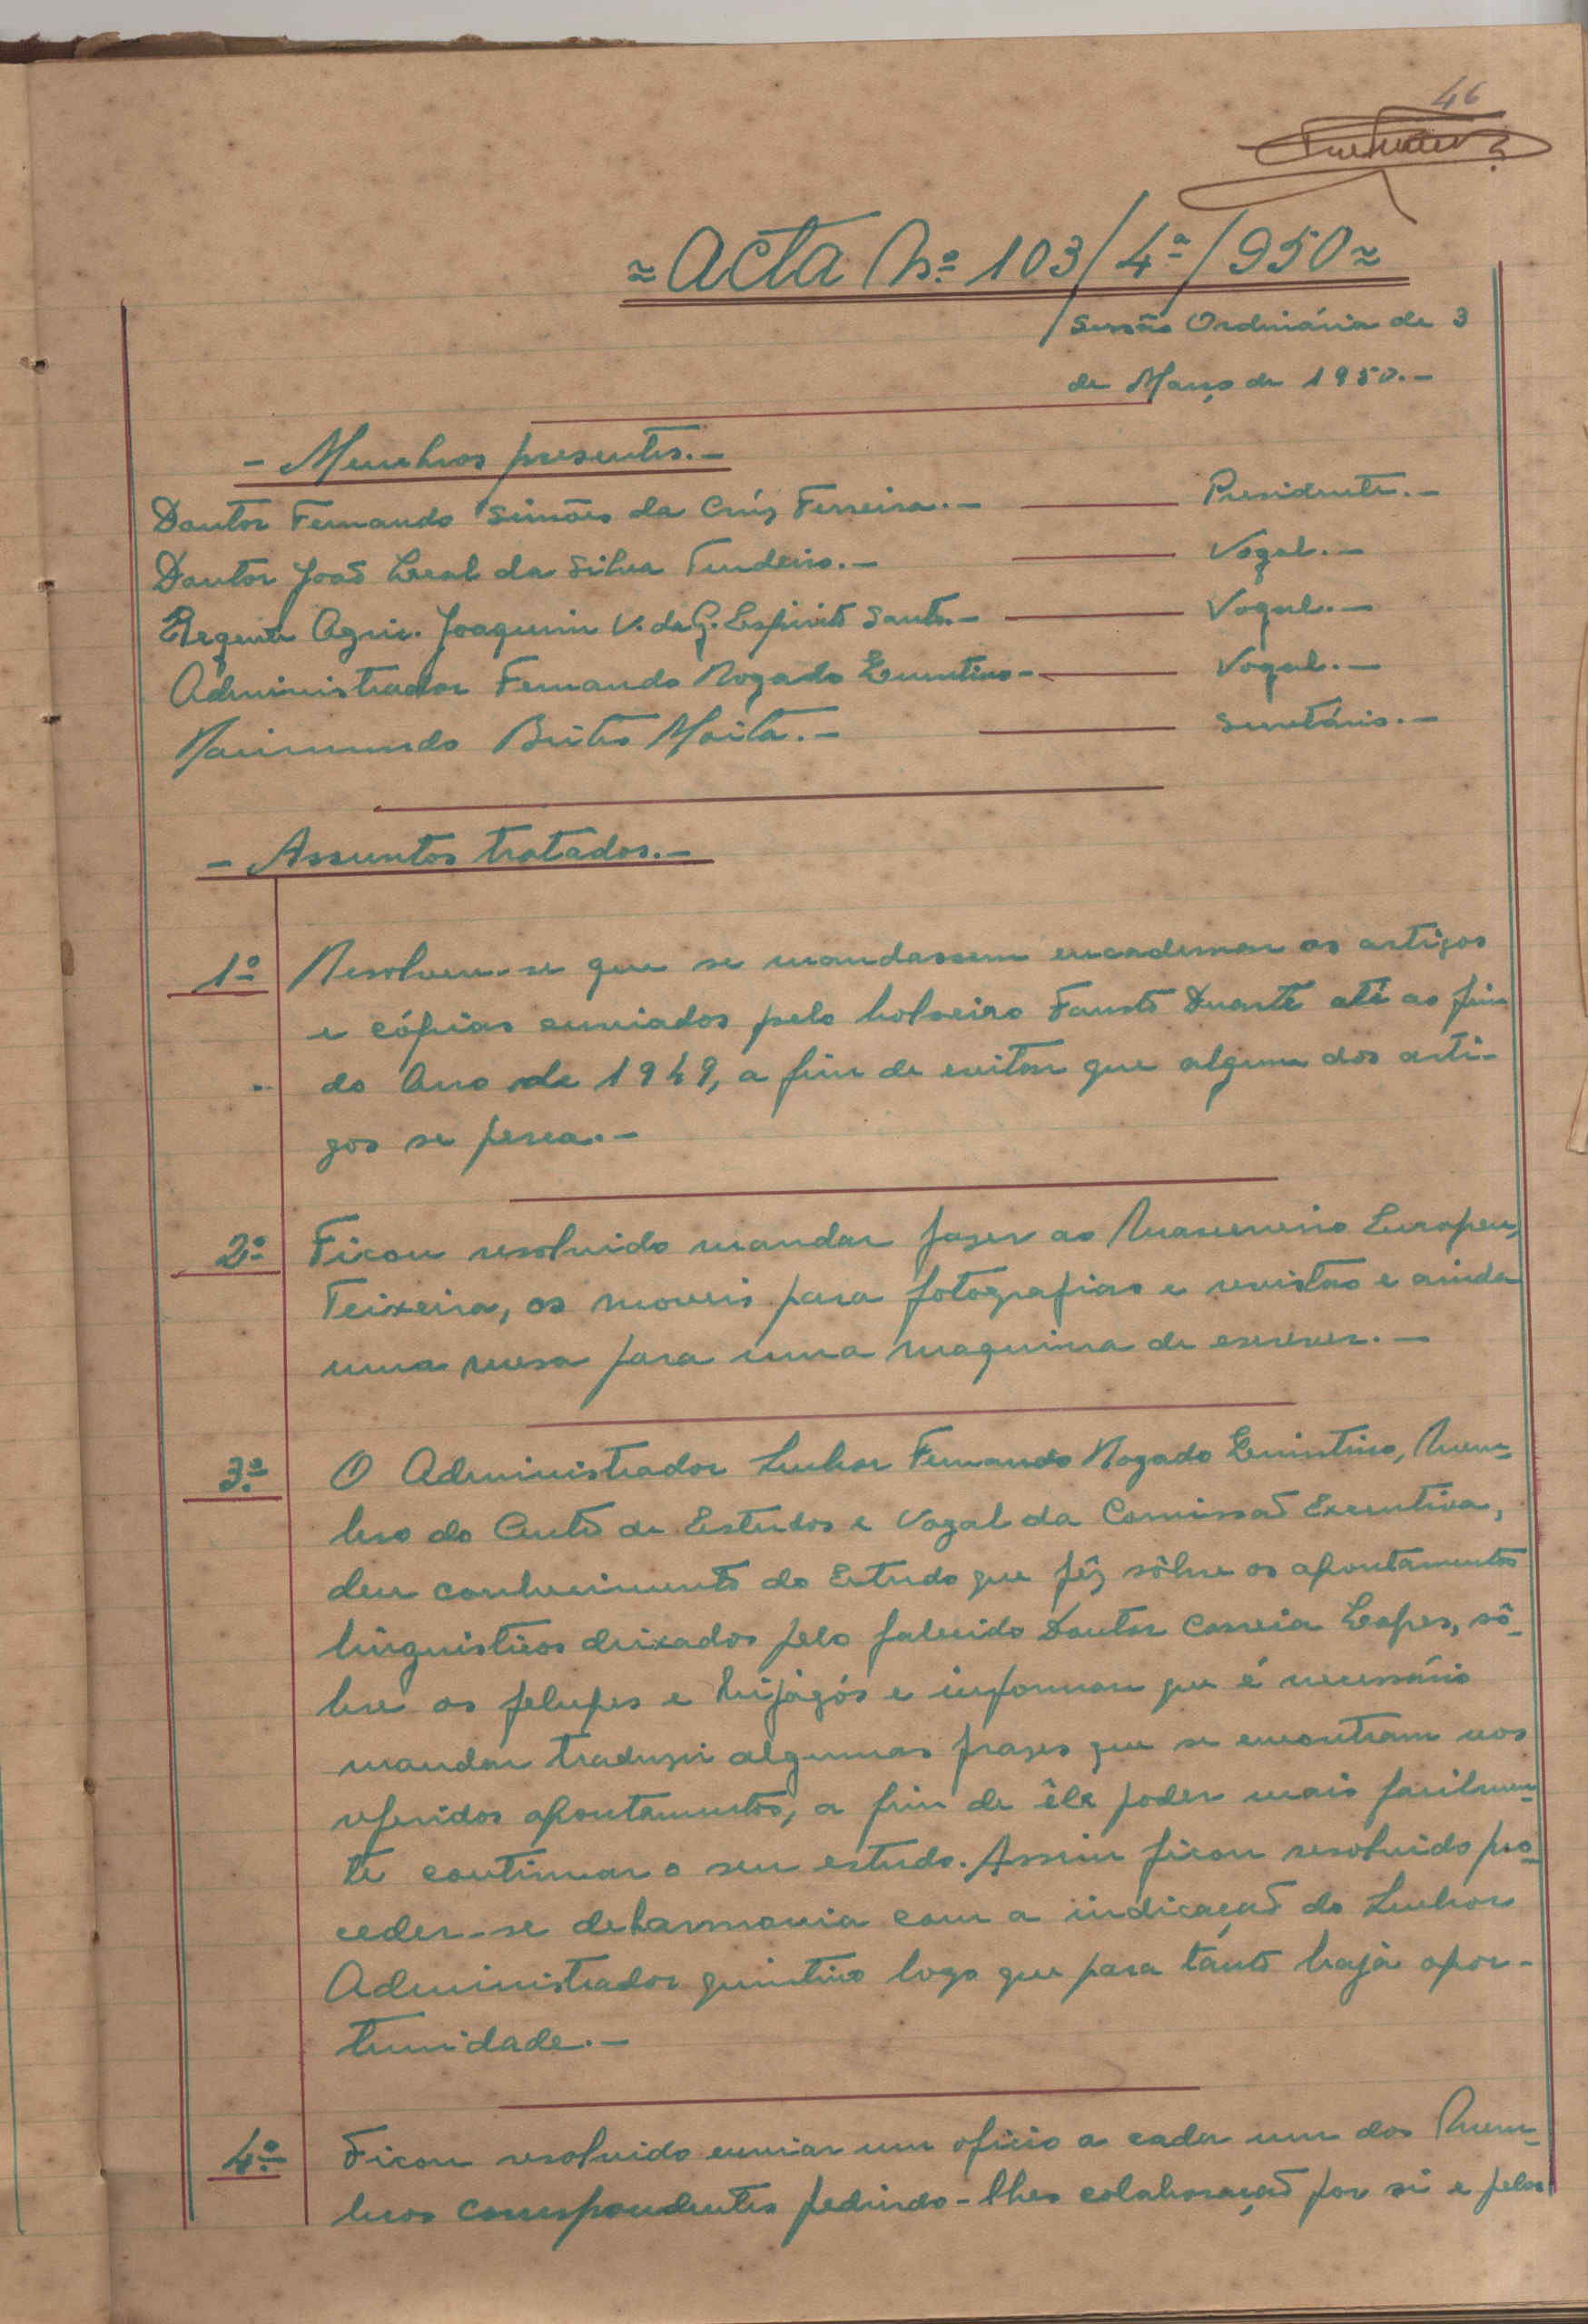 46
≈ Acta Nº 103/4ª/950 ≈
Sessão Ordinária de 3
de Março de 1950.-
- Membros presentes.-
Doutor Fernando Simões da Crúz Ferreira.- Presidente.-
Doutor João Leal da Silva Tendeiro.- Vogal.-
Regente Agric. Joaquim V. da G. Espirito Santo.- Vogal.-
Administrador Fernando Rogado Quintino- Vogal.-
Raimundo Brites Moita.- Secretário.-
- Assuntos tratados.-
1º Resolveu-se que se mandassem encadernar os artigos
e cópias enviados pelo bolseiro Fausto Duarte até ao fim
do Ano de 1949, a fim de evitar que algum dos arti-
gos se perca.-
2º Ficou resolvido mandar fazer ao Marceneiro Europeu,
Teixeira, os moveis para fotografias e revistas e ainda
uma mesa para uma maquina de escrever.-
3º O Administrador Senhor Fernando Rogado Quintino, Mem-
bro do Centro de Estudos e Vogal da Comissão Executiva,
deu conhecimento do Estudo que fêz sôbre os apontamentos
linguisticos deixados pelo falecido Doutor Correia Lopes, sô-
bre os felupes e bijagós e informou que é necessário
mandar traduzir algumas frazes que se encontram nos
referidos apontamentos, a fim de êle poder mais facilmen-
te continuar o seu estudo. Assim ficou resolvido pro-
ceder-se de harmonia com a indicação do Senhor
Administrador quintino logo que para tanto haja opor-
tunidade.-
4º Ficou resolvido enviar um oficio a cada um dos Mem-
bros correspondentes pedindo-lhes colaboração por si e pelos